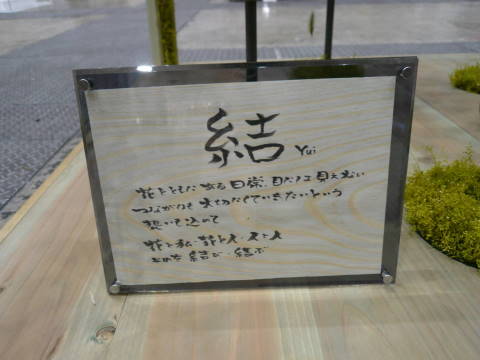 結
Yui
花とともにある日常、目には見えない
つながりを大切にしていきたいという
想いを込めて
花と私・花と人・人と人
を結び・結ぶ